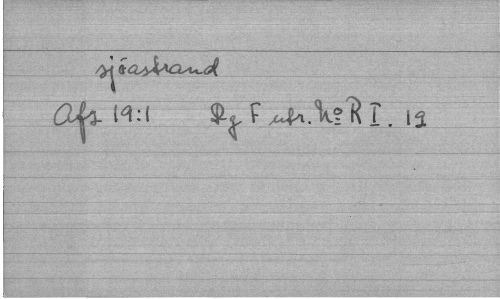 sjöastrand
Afs 19:1 Rg F utr. No R I. 19